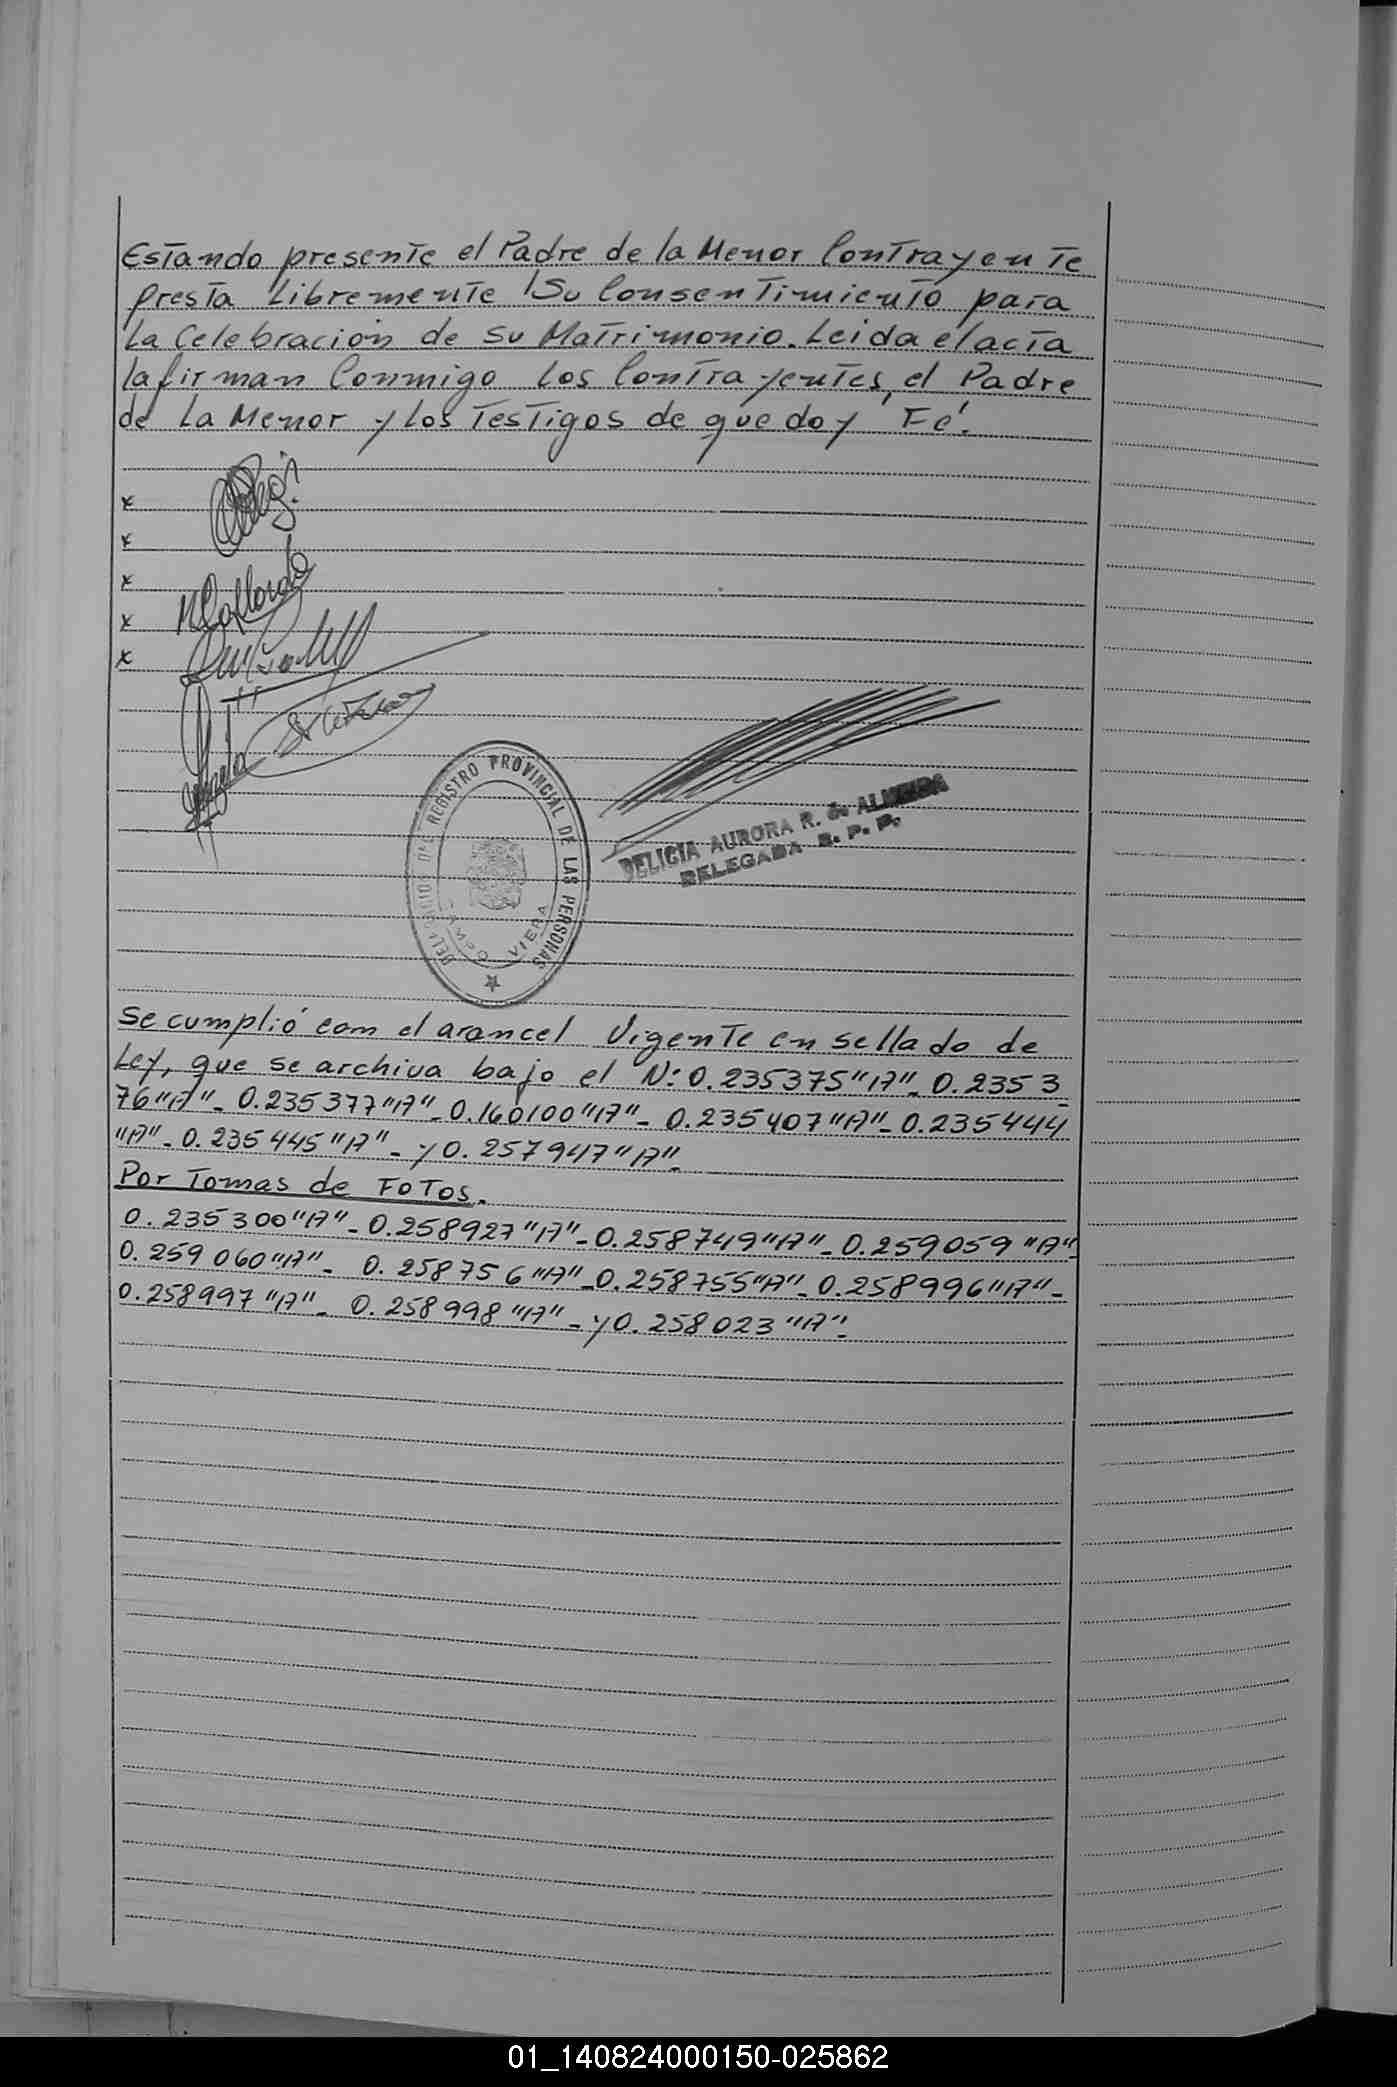 Estando presente el Padre de la Menor Contrayente
presta Libremente Su Consentimiento para
La Celebración de su Matrimonio. Leida el acta
la firman Conmigo Los Contrayentes, el Padre
de La Menor y los Testigos de que doy Fé.
x
x
x
x
x
DELEGACION DEL REGISTRO PROVINCIAL DE LAS PERSONAS
CAMPO VIERA
DELICIA AURORA R. de ALMEIDA
DELEGADA R. P. P.
Se cumplió con el arancel Vigente en sellado de
Ley, que se archiva bajo el N: 0.235375 "A" - 0.2353
76 "A" - 0.235377 "A" - 0.160100 "A" - 0.235407 "A" - 0.235444
"A" - 0.235445 "A" - y 0.257947 "A" -
Por Tomas de FOTOS.
0.235300 "A" - 0.258927 "A" - 0.258749 "A" - 0.259059 "A" -
0.259060 "A" - 0.258756 "A" - 0.258755 "A" - 0.258996 "A" -
0.258997 "A" - 0.258998 "A" - y 0.258023 "A" -
01_140824000150-025862